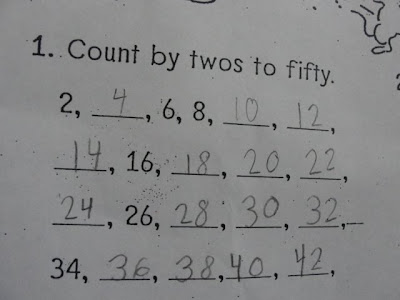 1. Count by twos to fifty.
2, 4, 6, 8, 10, 12,
14, 16, 18, 20, 22,
24, 26, 28, 30, 32,
34, 36, 38, 40, 42,